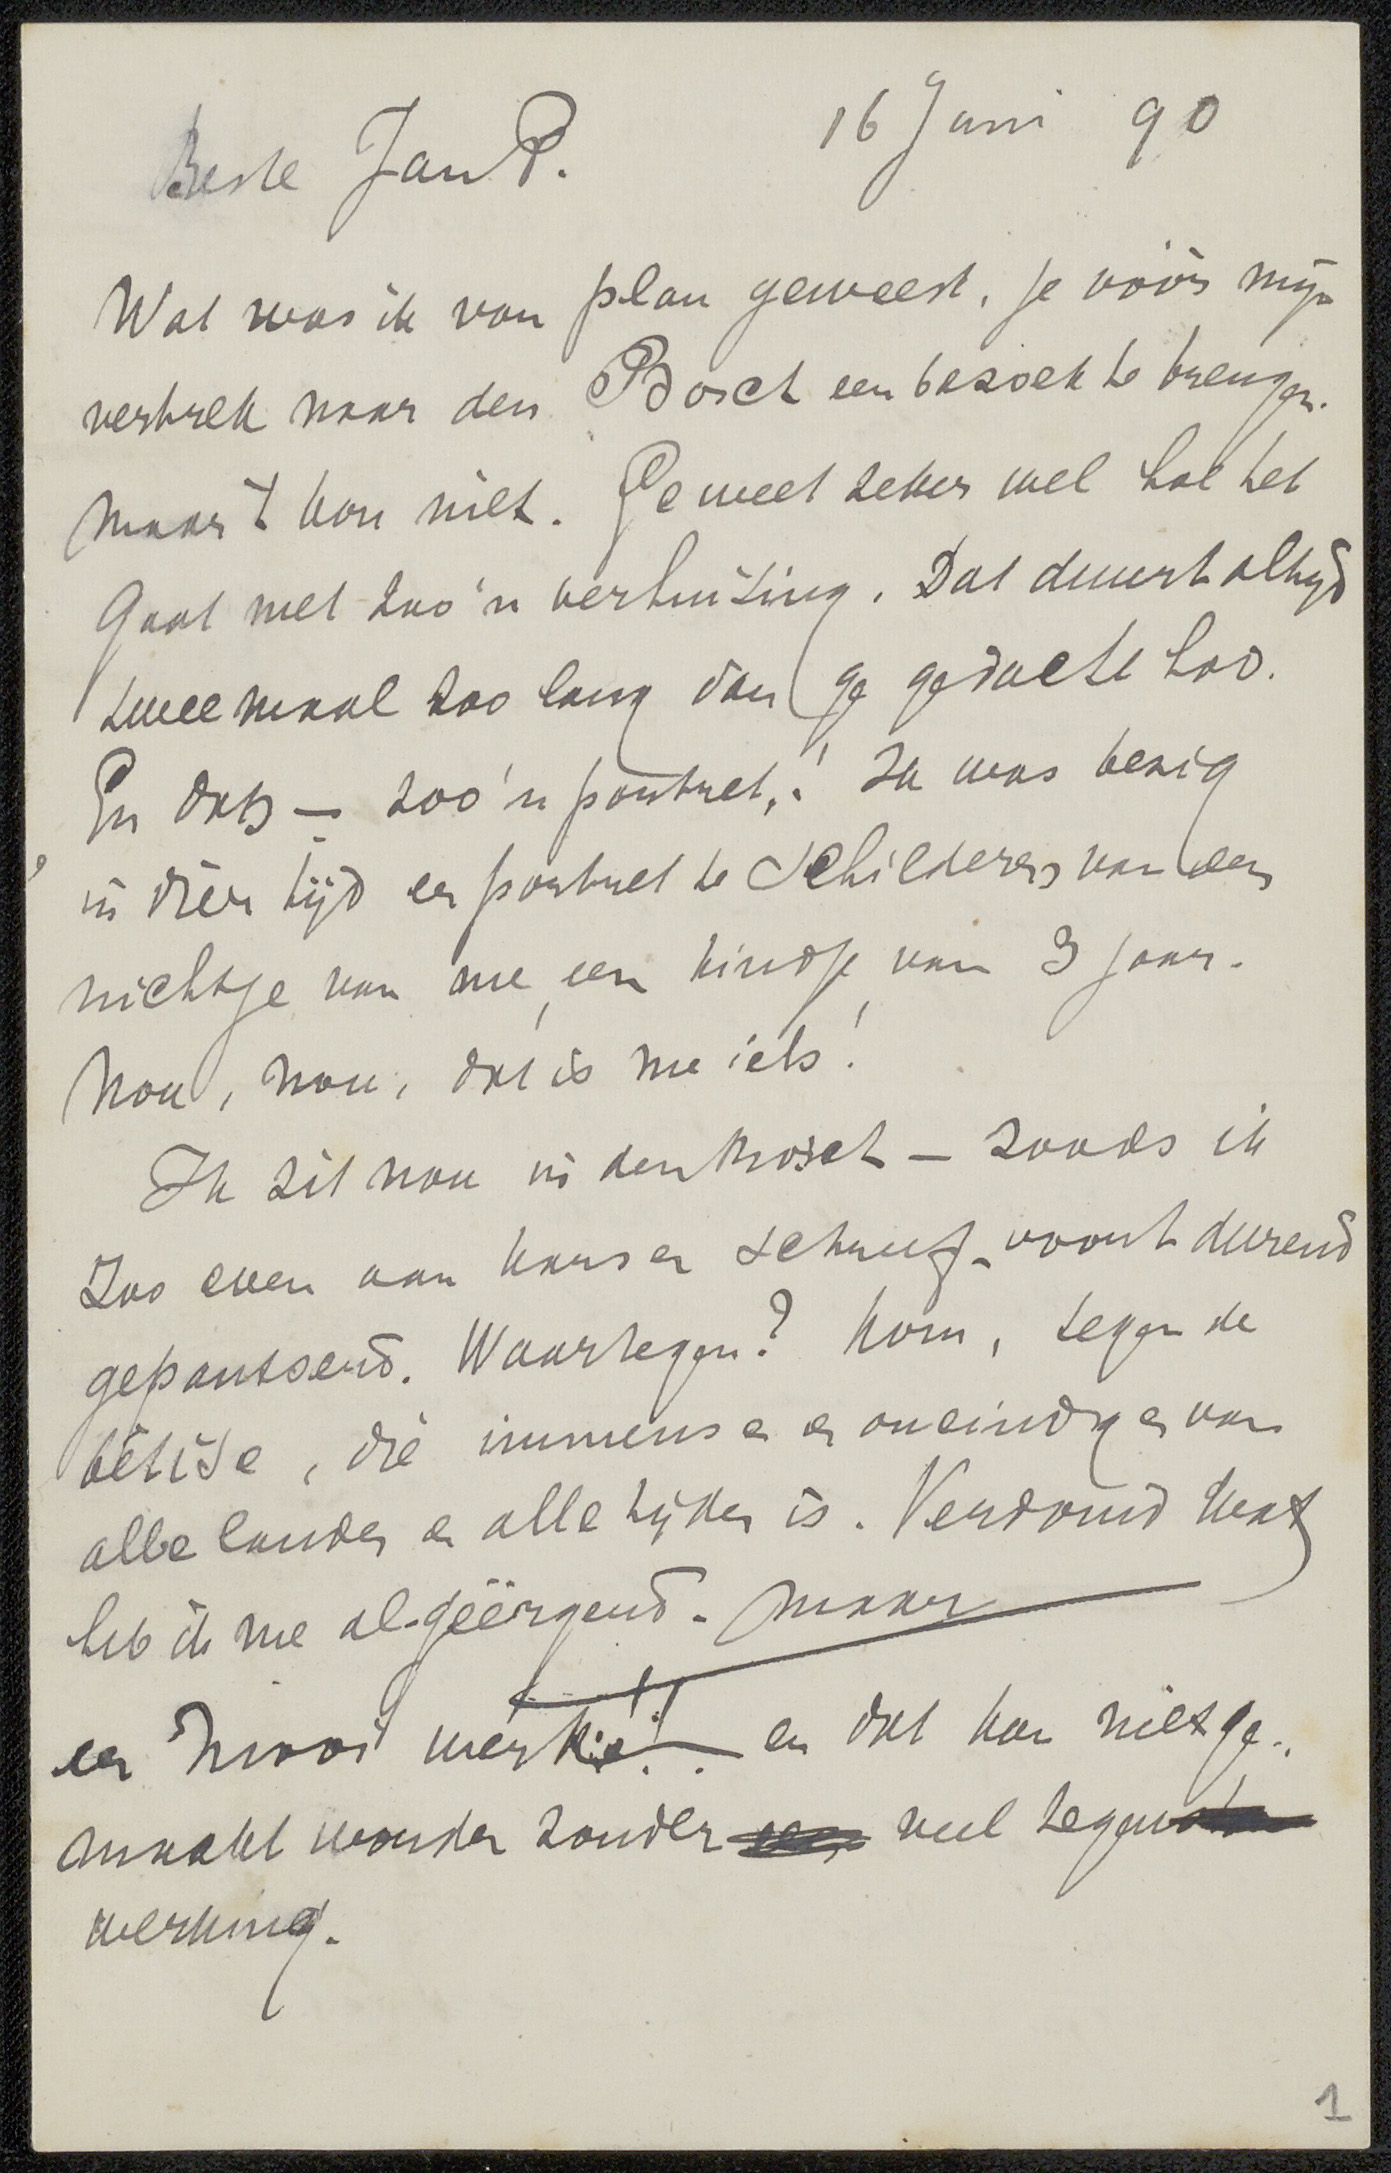 16 Juni 90
Beste Jan P.
Wat was ik van plan geweest, je vóór mijn
vertrek naar den Bosch een bezoek te brengen.
maar 't kon niet. Je weet zeker wel hoe het
gaat met zoo'n verhuizing. Dat duurt altijd
tweemaal zoo lang dan ge gedacht had.
En dan — zoo'n portret! Ik was bezig
in dien tijd een portret te schilderen van een
nichtje van me, een kindje van 3 jaar.
Nou, nou, dat is me iets!
Ik zit nou in den Bosch — zooals ik
zoo even aan schreef - voortdurend
gepantserd. Waartegen? Kom, tegen de
bêtise, die immense en oneindige van
alle landen en alle tijden is. Verdomd wat
heb ik me al geërgerd. maar
een mooi werkie!! — en dat kan niet ge-
maakt worden zonder veel tegen
werking.
1